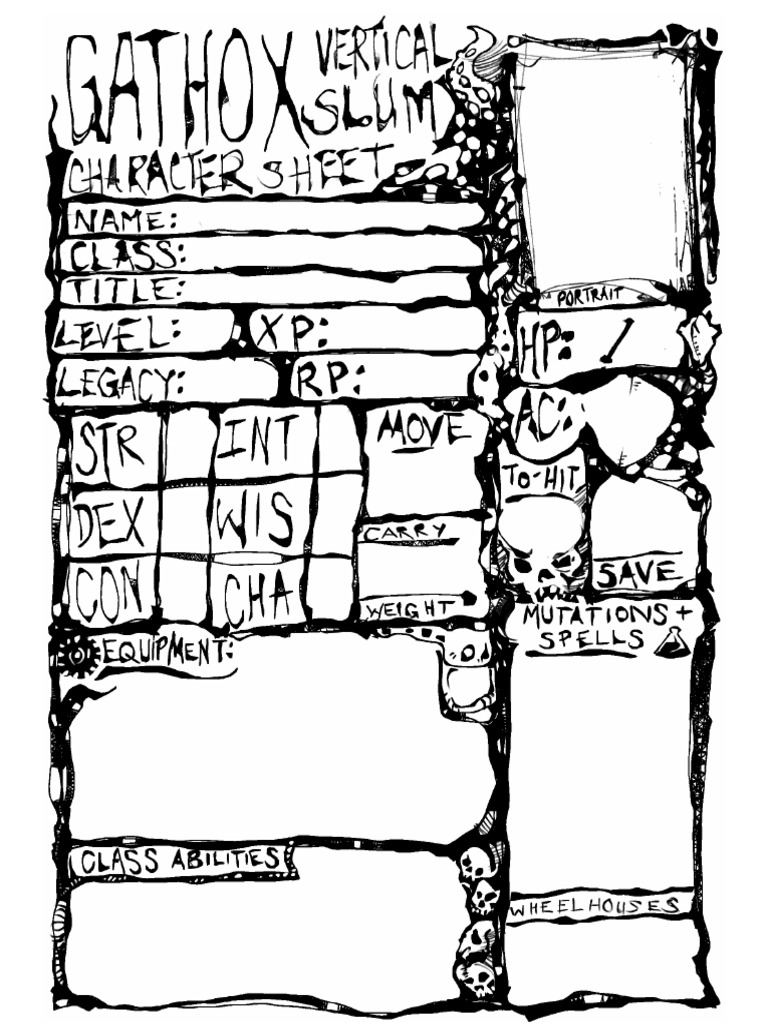 GATHOX VERTICAL
SLUM
CHARACTER SHEET
NAME:
CLASS:
TITLE:
LEVEL: XP:
LEGACY: RP:
PORTRAIT
HP: /
AC:
STR INT MOVE
DEX WIS CARRY
CON CHA WEIGHT
TO-HIT
SAVE
EQUIPMENT:
MUTATIONS +
SPELLS
CLASS ABILITIES
WHEELHOUSES